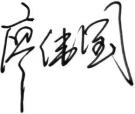 廖伟国